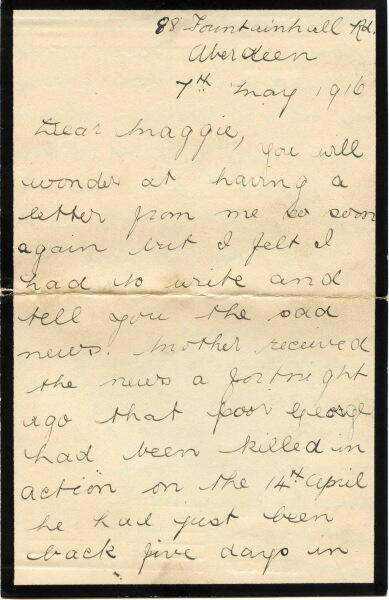 88 Fountainhall Rd.
Aberdeen
7th May 1916
Dear Maggie,
you will
wonder at having a
letter from me so soon
again but I felt I
had to write and
tell you the sad
news. Mother received
the news a fortnight
ago that poor George
had been killed in
action on the 14th April
he had just been
back five days in